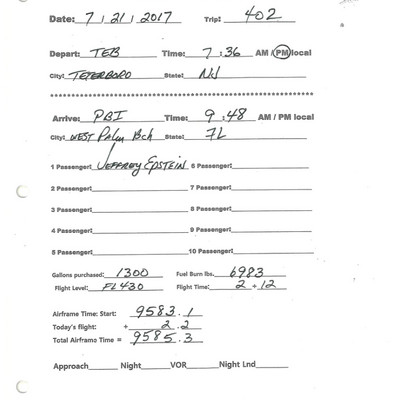 Date: 7/21/2017 Trip: 402
Depart: TEB Time: 7:36 AM / PM local
City: TETERBORO State: NJ
Arrive: PBI Time: 9:48 AM / PM local
City: WEST Palm Bch State: FL
1 Passenger: JEFFREY EPSTEIN 6 Passenger:
2 Passenger: 7 Passenger:
3 Passenger: 8 Passenger:
4 Passenger: 9 Passenger:
5 Passenger: 10 Passenger:
Gallons purchased: 1300 Fuel Burn lbs. 6983
Flight Level: FL430 Flight Time: 2 + 12
Airframe Time: Start: 9583.1
Today's flight: + 2.2
Total Airframe Time = 9585.3
Approach Night VOR Night Lnd